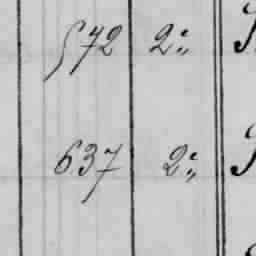 572 2:"
637 2:"